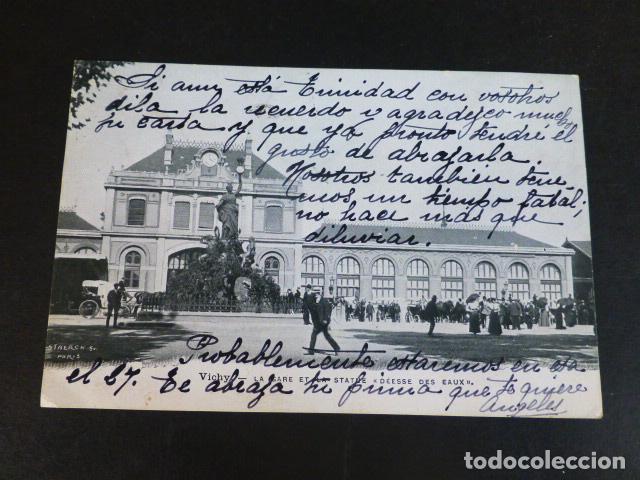 Si aun está Trinidad con vosotros
dila la recuerdo y agradezco mucho
su carta y que ya pronto tendre el
gusto de abrazarla.
Nosotros tambien tene-
mos un tiempo fatal;
no hace mas que
diluviar.
STAERCK G.
PARIS
Probablemente estaremos en esa
Vichy LA GARE ET LA STATUE «DÉESSE DES EAUX».
el 27. Te abraza tu prima que te quiere
Angeles
todocoleccion.net